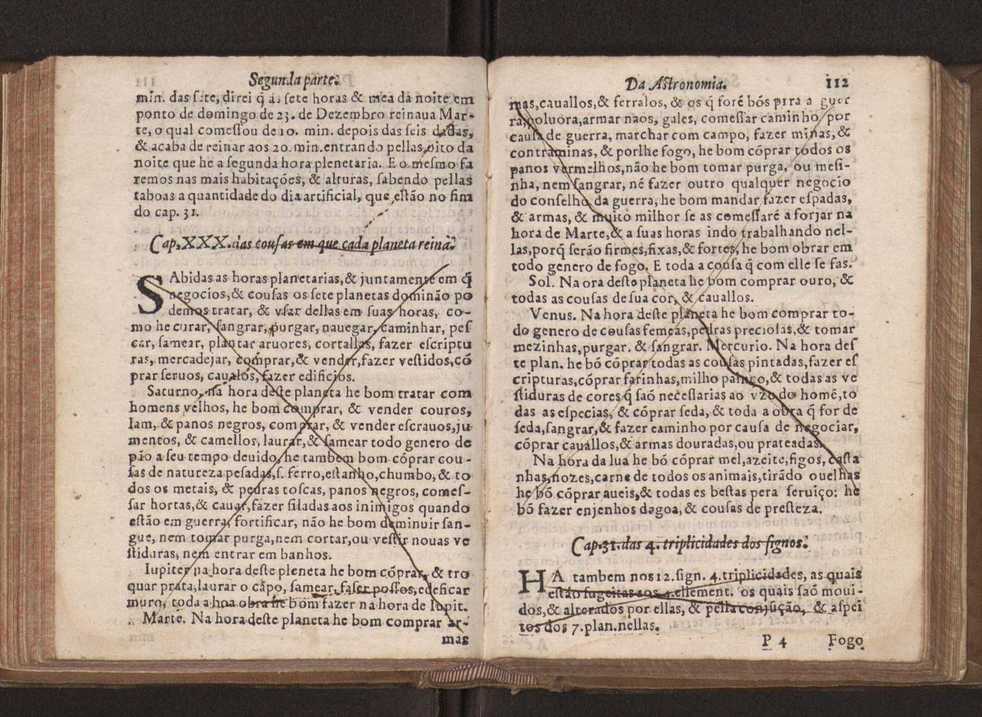 Segunda parte.
min. das sete, direi q̃ ás sete horas & mea da noite em
ponto de domingo de 23. de Dezembro reinaua Mar-
te, o qual comessou de 10. min. depois das seis dadas,
& acaba de reinar aos 20. min. entrando pellas oito da
noite que he a segunda hora plenetaria. E o mesmo fa
remos nas mais habitações, & alturas, sabendo pellas
taboas a quantidade do dia artificial, que estão no fim
do cap. 31.
Cap. XXX. das cousas em que cada planeta reina.
SAbidas as horas planetarias, & juntamente em q̃
negocios, & cousas os sete planetas dominão po
demos tratar, & vsar dellas em suas horas, co-
mo he curar, sangrar, purgar, nauegar, caminhar, pes
car, samear, plantar aruores, cortallas, fazer escriptu
ras, mercadejar, comprar, & vender, fazer vestidos, cõ
prar seruos, cauałos, fazer edificios.
Saturno, na hora deste planeta he bom tratar com
homens velhos, he bom comprar, & vender couros,
lam, & panos negros, comprar, & vender escrauos, ju
mentos, & camellos, laurar, & samear todo genero de
pão a seu tempo deuido, he tambem bom cóprar cou-
sas de natureza pesadas, s. ferro, estanho, chumbo, & to
dos os metais, & pedras toscas, panos negros, comes-
sar hortas, & cauar, fazer siladas aos inimigos quando
estão em guerra, fortificar, não he bom deminuir san-
gue, nem tomar purga, nem cortar, ou vestir nouas ve
stiduras, nem entrar em banhos.
Iupiter na hora deste pleneta he bom cóprar, & tro
quar prata, laurar o cãpo, samear, faser possos, edeficar
muro, toda a boa obra he bom fazer na hora de Iupit.
Marte. Na hora deste planeta he bom comprar ar-
mas
Da Astronomia. 112
mas, cauallos, & ferralos, & os q̃ foré bós pera a guer
ra, poluora, armar naos, gales, comessar caminho por
causa de guerra, marchar com campo, fazer minas, &
contraminas, & porlhe fogo, he bom cóprar todos os
panos vermelhos, não he bom tomar purga, ou mesi-
nha, nem sangrar, né fazer outro qualquer negocio
do conselho da guerra, he bom mandar fazer espadas,
& armas, & muito milhor se as comessaré a forjar na
hora de Marte, & a suas horas indo trabalhando nel-
las, porq̃ serão firmes, fixas, & fortes, he bom obrar em
todo genero de fogo. E toda a cousa q̃ com elle se fas.
Sol. Na ora deste planeta he bom comprar ouro, &
todas as cousas de sua cor, & cauallos.
Venus. Na hora deste planeta he bom comprar to-
do genero de cousas femeas, pedras preciosas, & tomar
mezinhas, purgar. & sangrar. Mercurio. Na hora des
te plan. he bó cóprar todas as cousas pintadas, fazer es
cripturas, cóprar farinhas, milho painço, & todas as ve
stiduras de cores q̃ saó necessarias ao vzo do homé, to
das as especias, & cóprar seda, & toda a obra q̃ for de
seda, sangrar, & fazer caminho por causa de negociar,
cóprar cauallos, & armas douradas, ou prateadas.
Na hora da lua he bó cóprar mel, azeite, figos, casta
nhas, nozes, carne de todos os animais, tirãdo ouelhas
he bó cóprar aueis, & todas es bestas pera seruiço: he
bó fazer enjenhos dagoa, & cousas de presteza.
Cap. 31. das 4. triplicidades dos signos.
HA tambem nos 12. sign. 4. triplicidades, as quais
estão sugeitas aos 4. ellement. os quais saó moui-
dos, & alterados por ellas, & pella conjução, & aspei
tos dos 7. plan. nellas.
P 4 Fogo